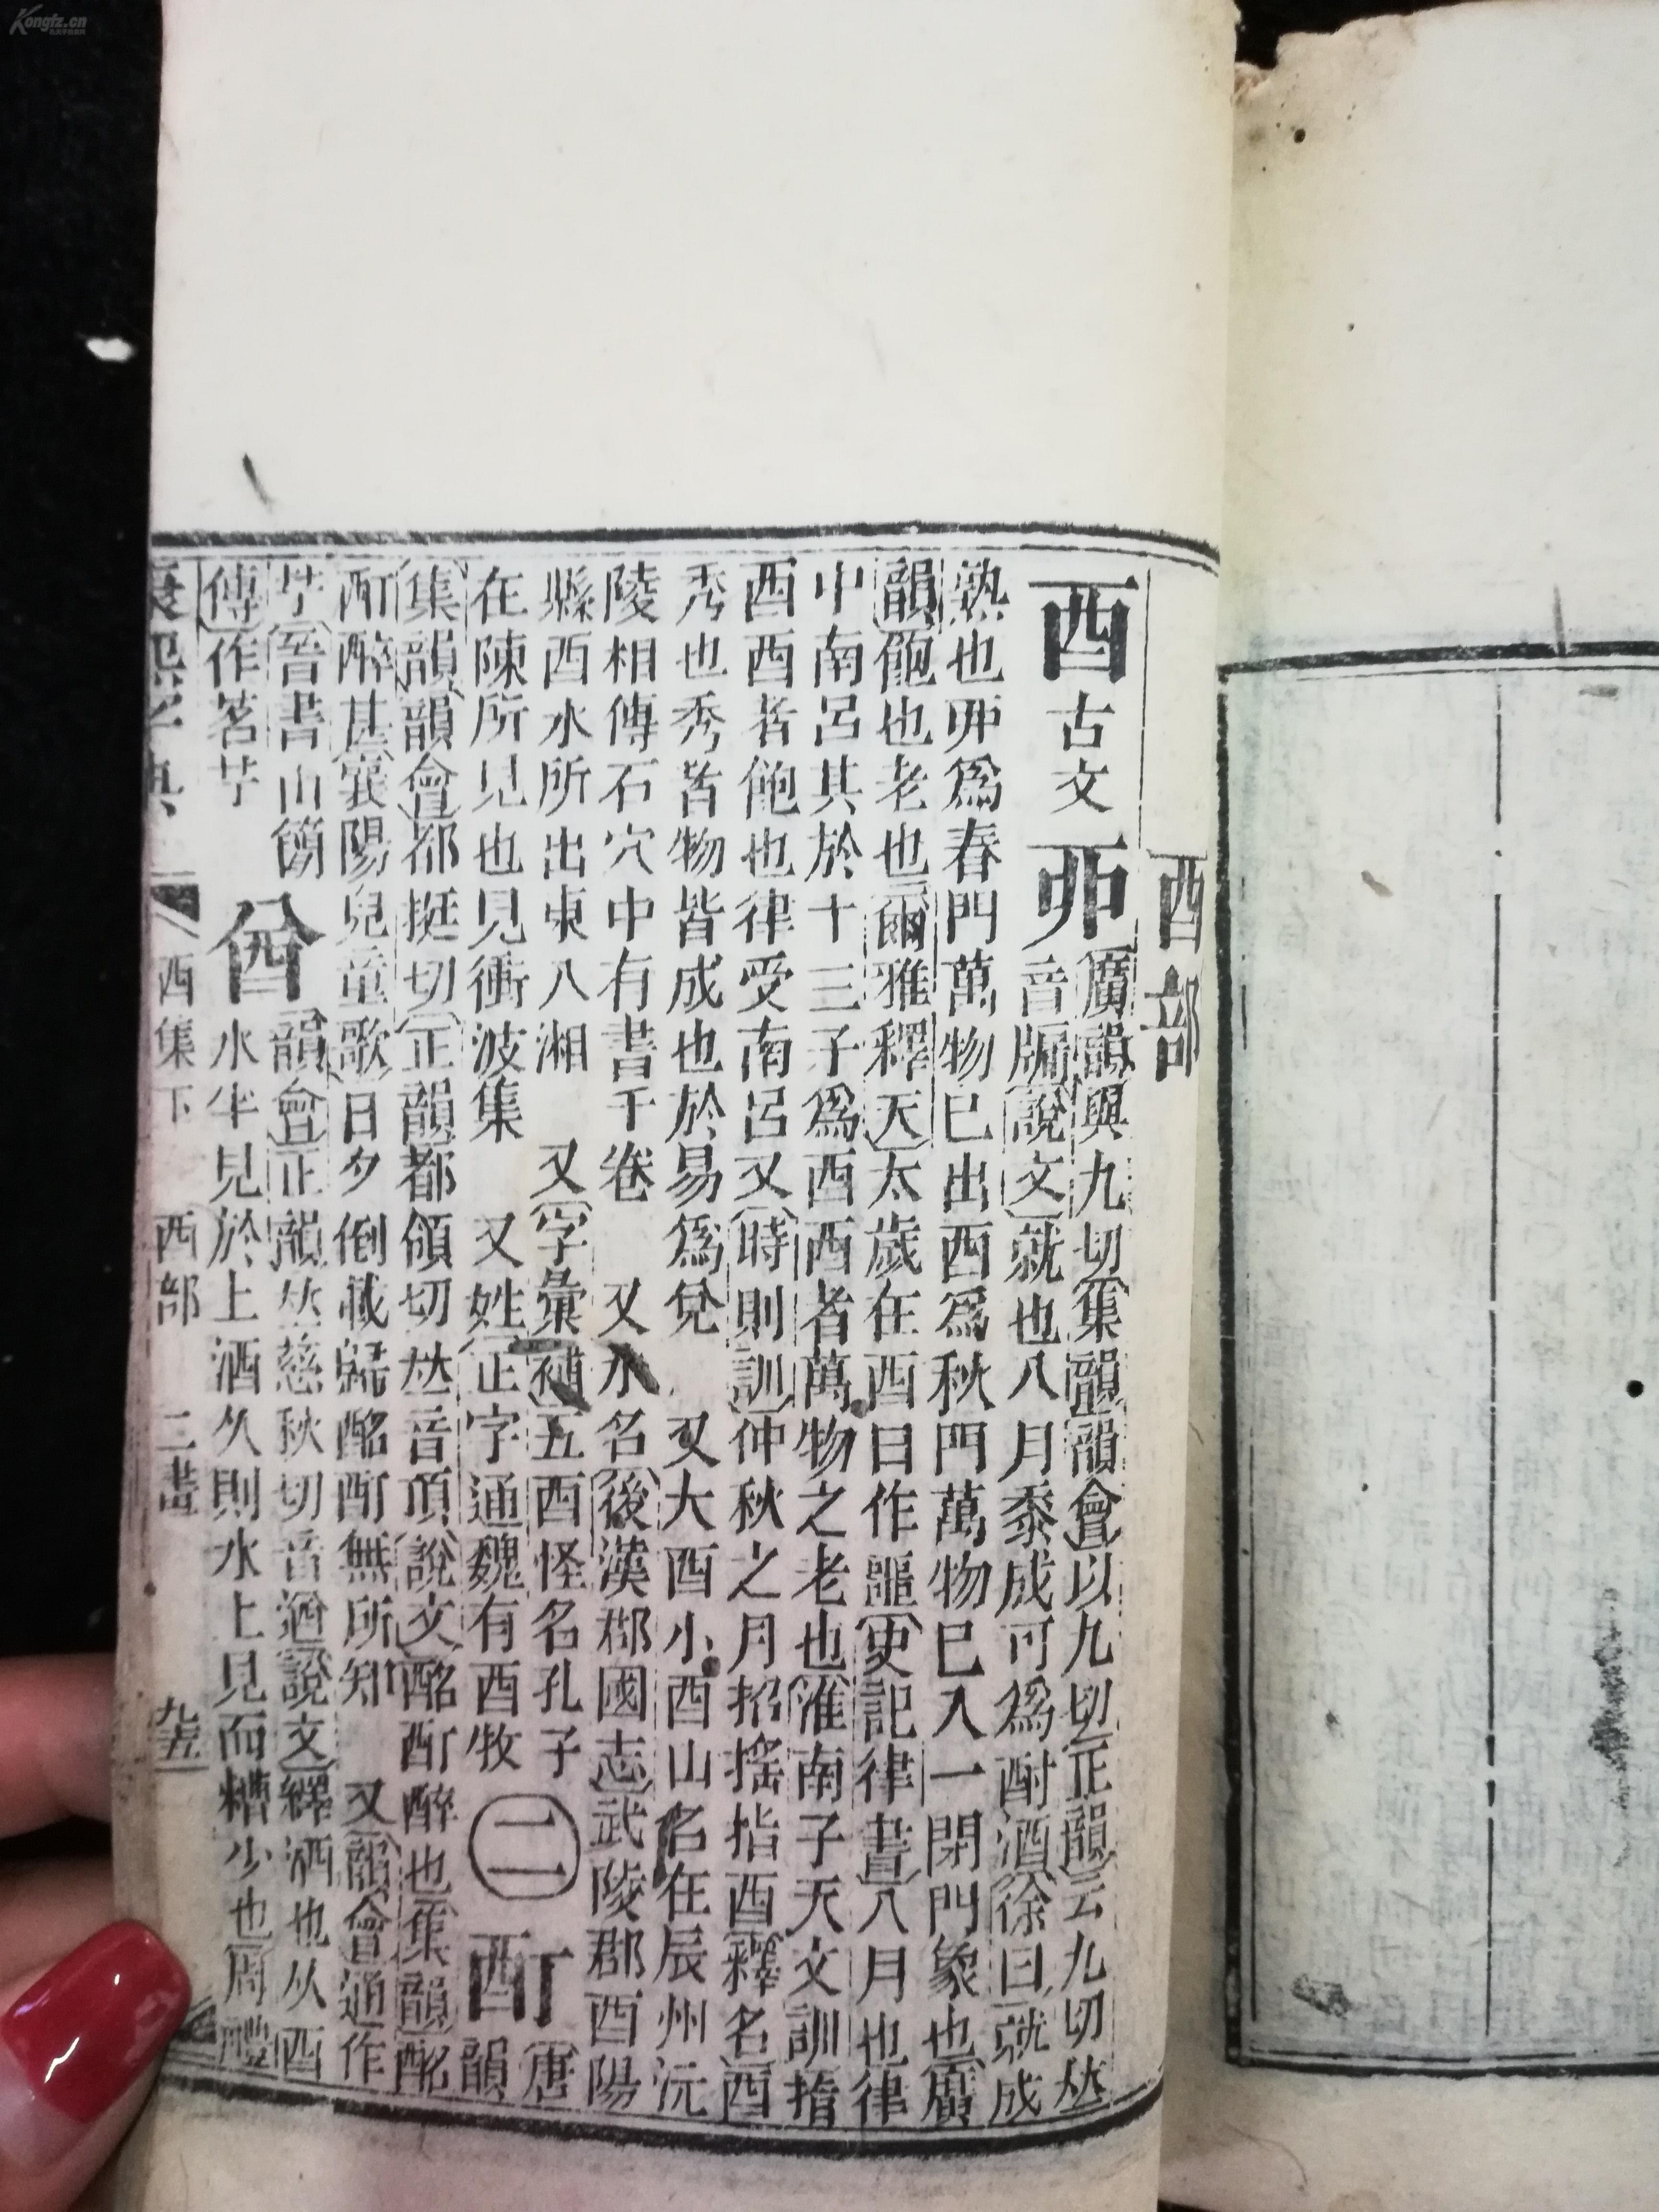 酉部
酉古文丣廣韻與九切集韻韻會以九切正韻云九切𠀤
音牖說文就也八月黍成可爲酎酒徐曰就成
熟也丣爲春門萬物已出酉爲秋門萬物已入一閉門象也廣
韻飽也老也爾雅釋天太歲在酉曰作噩史記律書八月也律
中南呂其於十二子爲酉酉者萬物之老也淮南子天文訓指
酉酉者飽也律受南呂又時則訓仲秋之月招搖指酉釋名酉
秀也秀者物皆成也於易爲兌 又大酉小酉山名在辰州沅
陵相傳石穴中有書千卷 又水名後漢郡國志武陵郡酉陽
縣酉水所出東入湘 又字彙補五酉怪名孔子
在陳所見也見衝波集 又姓正字通魏有酉牧 二 酊 唐韻
集韻韻會都挺切正韻都領切𠀤音頂說文酩酊醉也集韻酩
酊醉甚襄陽兒童歌日夕倒載歸酩酊無所知 又韻會通作
艼晉書山簡
傳作茗艼 酋 韻會正韻𠀤慈秋切音遒說文繹酒也从酉
水半見於上酒久則水上見而糟少也周禮
康熙字典 酉集下 酉部 二畫 九五
Kongfz.cn